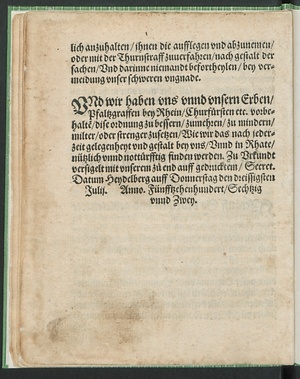 lich anzuhalten / ihnen die aufflegen vnd abzunemen /
oder mit der Thurnstraff zuuerfahren / nach gestalt der
sachen / Vnd darinne niemandt befortheylen / bey ver-
meidung vnser schweren vngnade.
VNd wir haben vns vnnd vnsern Erben /
Pfaltzgraffen bey Rhein / Churfürsten etc. vorbe-
haltē / dise ordnung zu bessern / zumehren / zu mindern /
milter / oder strenger zusetzen / Wie wir das nach jeder-
zeit gelegenheyt vnd gestalt bey vns / Vnnd in Rhate /
nützlich vnnd notturfftig finden werden. Zu Vrkundt
versigelt mit vnserem zū end auff gedrucktem / Secret.
Datum Heydelberg auff Donnerstag den dreissigsten
Julij. Anno. Fünfftzehenhundert / Sechtzig
vnnd Zwey.